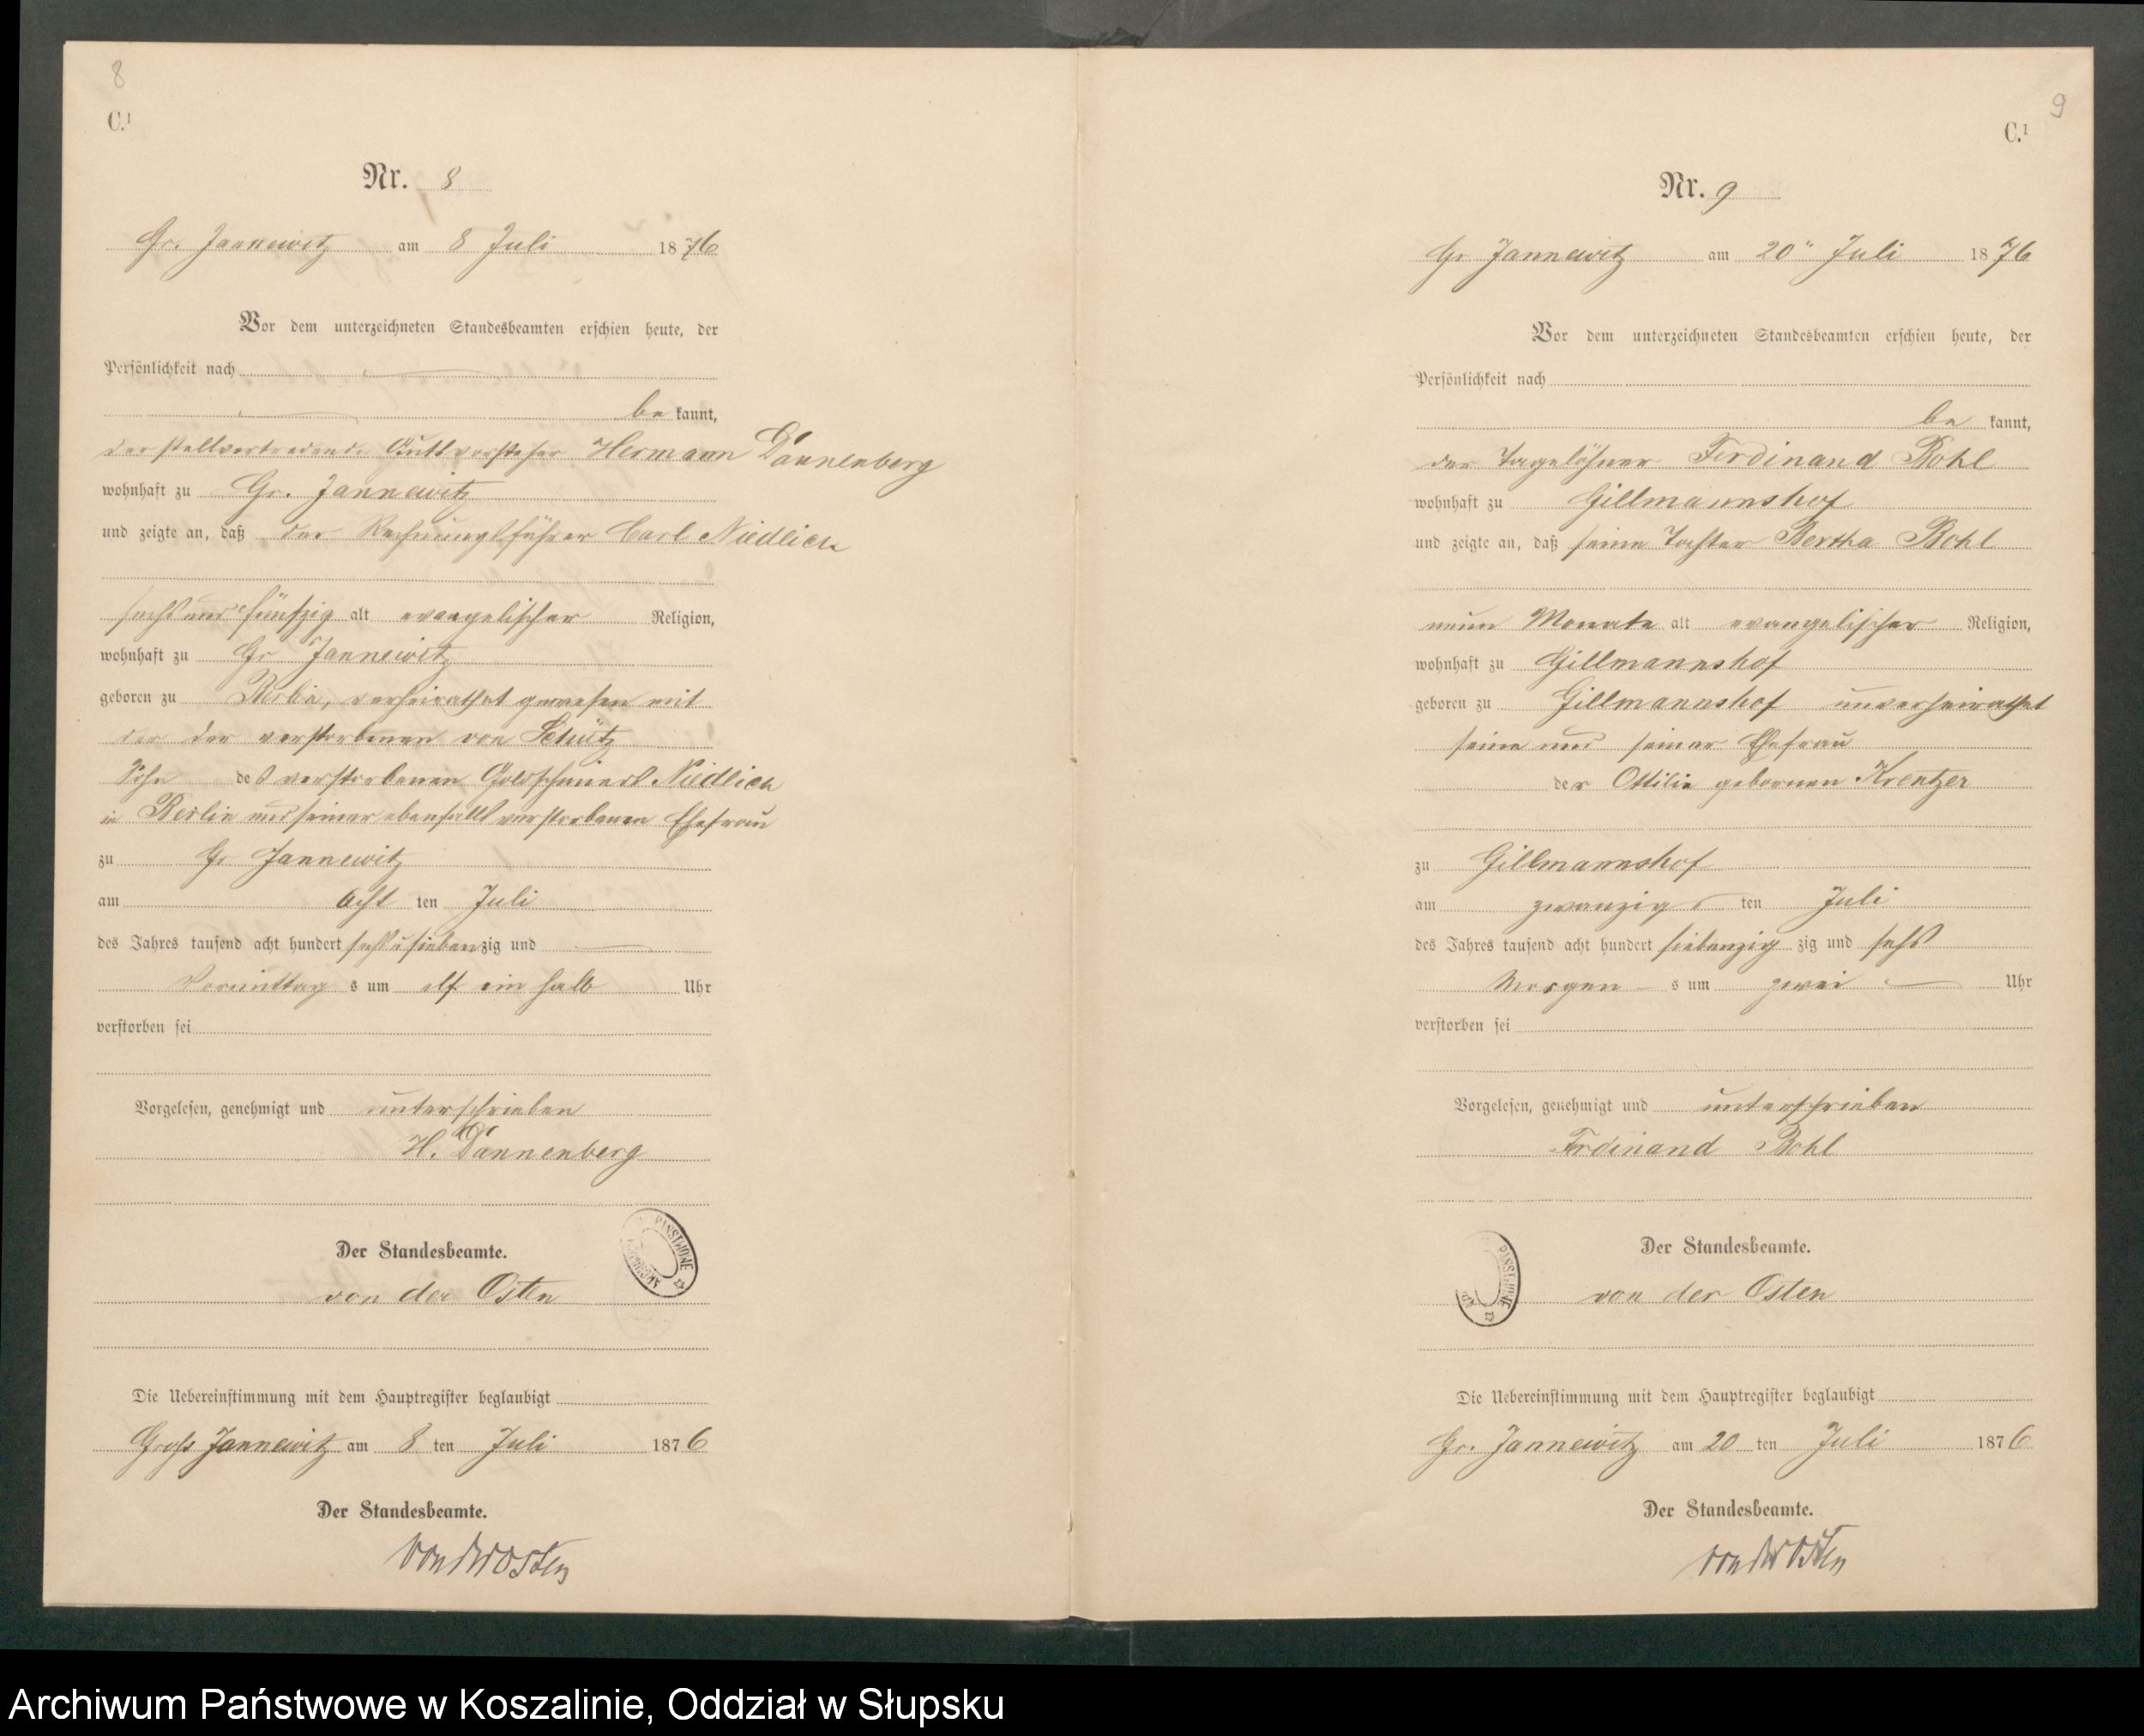 8
C.¹
Nr. 8
Gr. Jannewitz am 8 Juli 1876
Vor dem unterzeichneten Standesbeamten erschien heute, der
Persönlichkeit nach
be kannt,
der stellvertretende Gutsvorsteher Hermann Dannenberg
wohnhaft zu Gr. Jannewitz
und zeigte an, daß der Rechnungsführer Carl Niedlich
sechs und fünfzig alt evangelischer Religion,
wohnhaft zu Gr Jannewitz
geboren zu Berlin, verheirathet gewesen mit
der der verstorbenen von Schütz
Sohn des verstorbenen Goldschmied Niedlich
in Berlin und seiner ebenfalls verstorbenen Ehefrau
zu Gr Jannewitz
am acht ten Juli
des Jahres tausend acht hundert sechs u siebenzig und
Vormittag s um elf ein halb Uhr
verstorben sei
Vorgelesen, genehmigt und unterschrieben
H. Dannenberg
Der Standesbeamte.
von der Osten
PAŃSTWOWE
Die Uebereinstimmung mit dem Hauptregister beglaubigt
Gross Jannewitz am 8 ten Juli 1876
Der Standesbeamte.
von der Osten
9
C.¹
Nr. 9
Gr Jannewitz am 20" Juli 1876
Vor dem unterzeichneten Standesbeamten erschien heute, der
Persönlichkeit nach
be kannt,
der Tagelöhner Ferdinand Bohl
wohnhaft zu Gillmannshof
und zeigte an, daß seine Tochter Bertha Bohl
neun Monate alt evangelischer Religion,
wohnhaft zu Gillmannshof
geboren zu Gillmannshof unverheirathet
seine und seiner Ehefrau
der Ottilie gebornen Krentzer
zu Gillmannshof
am zwanzigs ten Juli
des Jahres tausend acht hundert siebenzig zig und sechs
Morgen s um zwei Uhr
verstorben sei
Vorgelesen, genehmigt und unterschrieben
Ferdinand Bohl
Der Standesbeamte.
von der Osten
Die Uebereinstimmung mit dem Hauptregister beglaubigt
Gr. Jannewitz am 20 ten Juli 1876
Der Standesbeamte.
von der Osten
Archiwum Państwowe w Koszalinie, Oddział w Słupsku